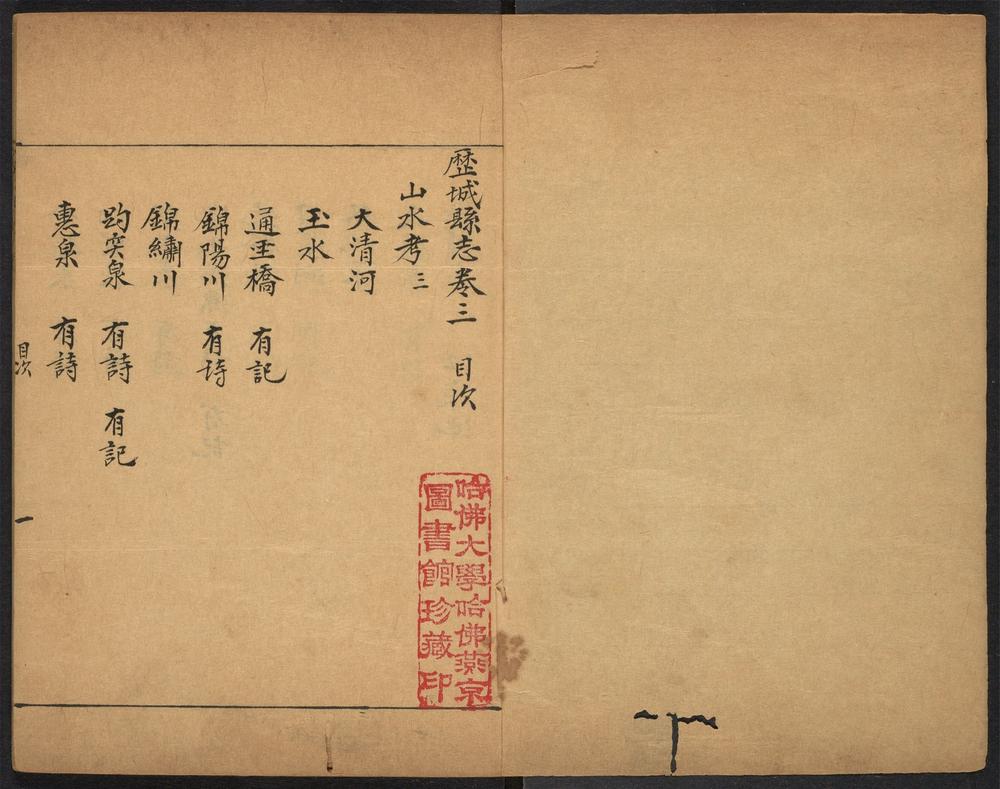 歷城縣志卷三 目次
山水考三
大清河
玉水
通 橋 有記
錦陽川 有詩
錦繡川
趵突泉 有詩 有記
惠泉 有詩
目次
一
哈佛大學哈佛燕京
圖書館珍藏印